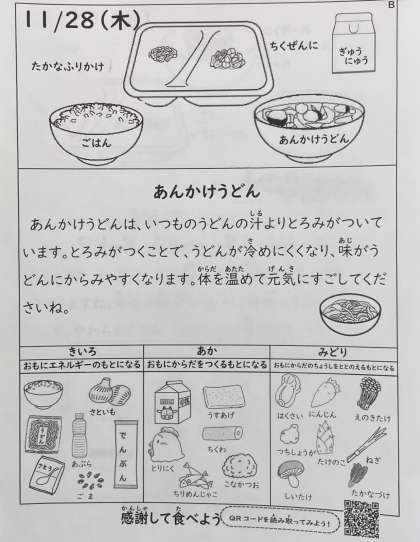 B
11/28(木)
たかなふりかけ
ちくぜんに
ぎゅう
にゅう
ごはん
あんかけうどん
あんかけうどん
あんかけうどんは、いつものうどんの汁よりとろみがついて
います。とろみがつくことで、うどんが冷めにくくなり、味がう
どんにからみやすくなります。体を温めて元気にすごしてくだ
さいね。
きいろ
おもにエネルギーのもとになる
さといも
うどん
あぶら
でんぷん
さとう
ごま
あか
おもにからだをつくるもとになる
うすあげ
とりにく
ちくわ
ちりめんじゃこ
こなかつお
みどり
おもにからだのちょうしをととのえるもとになる
はくさい
にんじん
えのきたけ
つちしょうが
たけのこ
ねぎ
しいたけ
たかなづけ
感謝して食べよう
QRコードを読み取ってみよう!